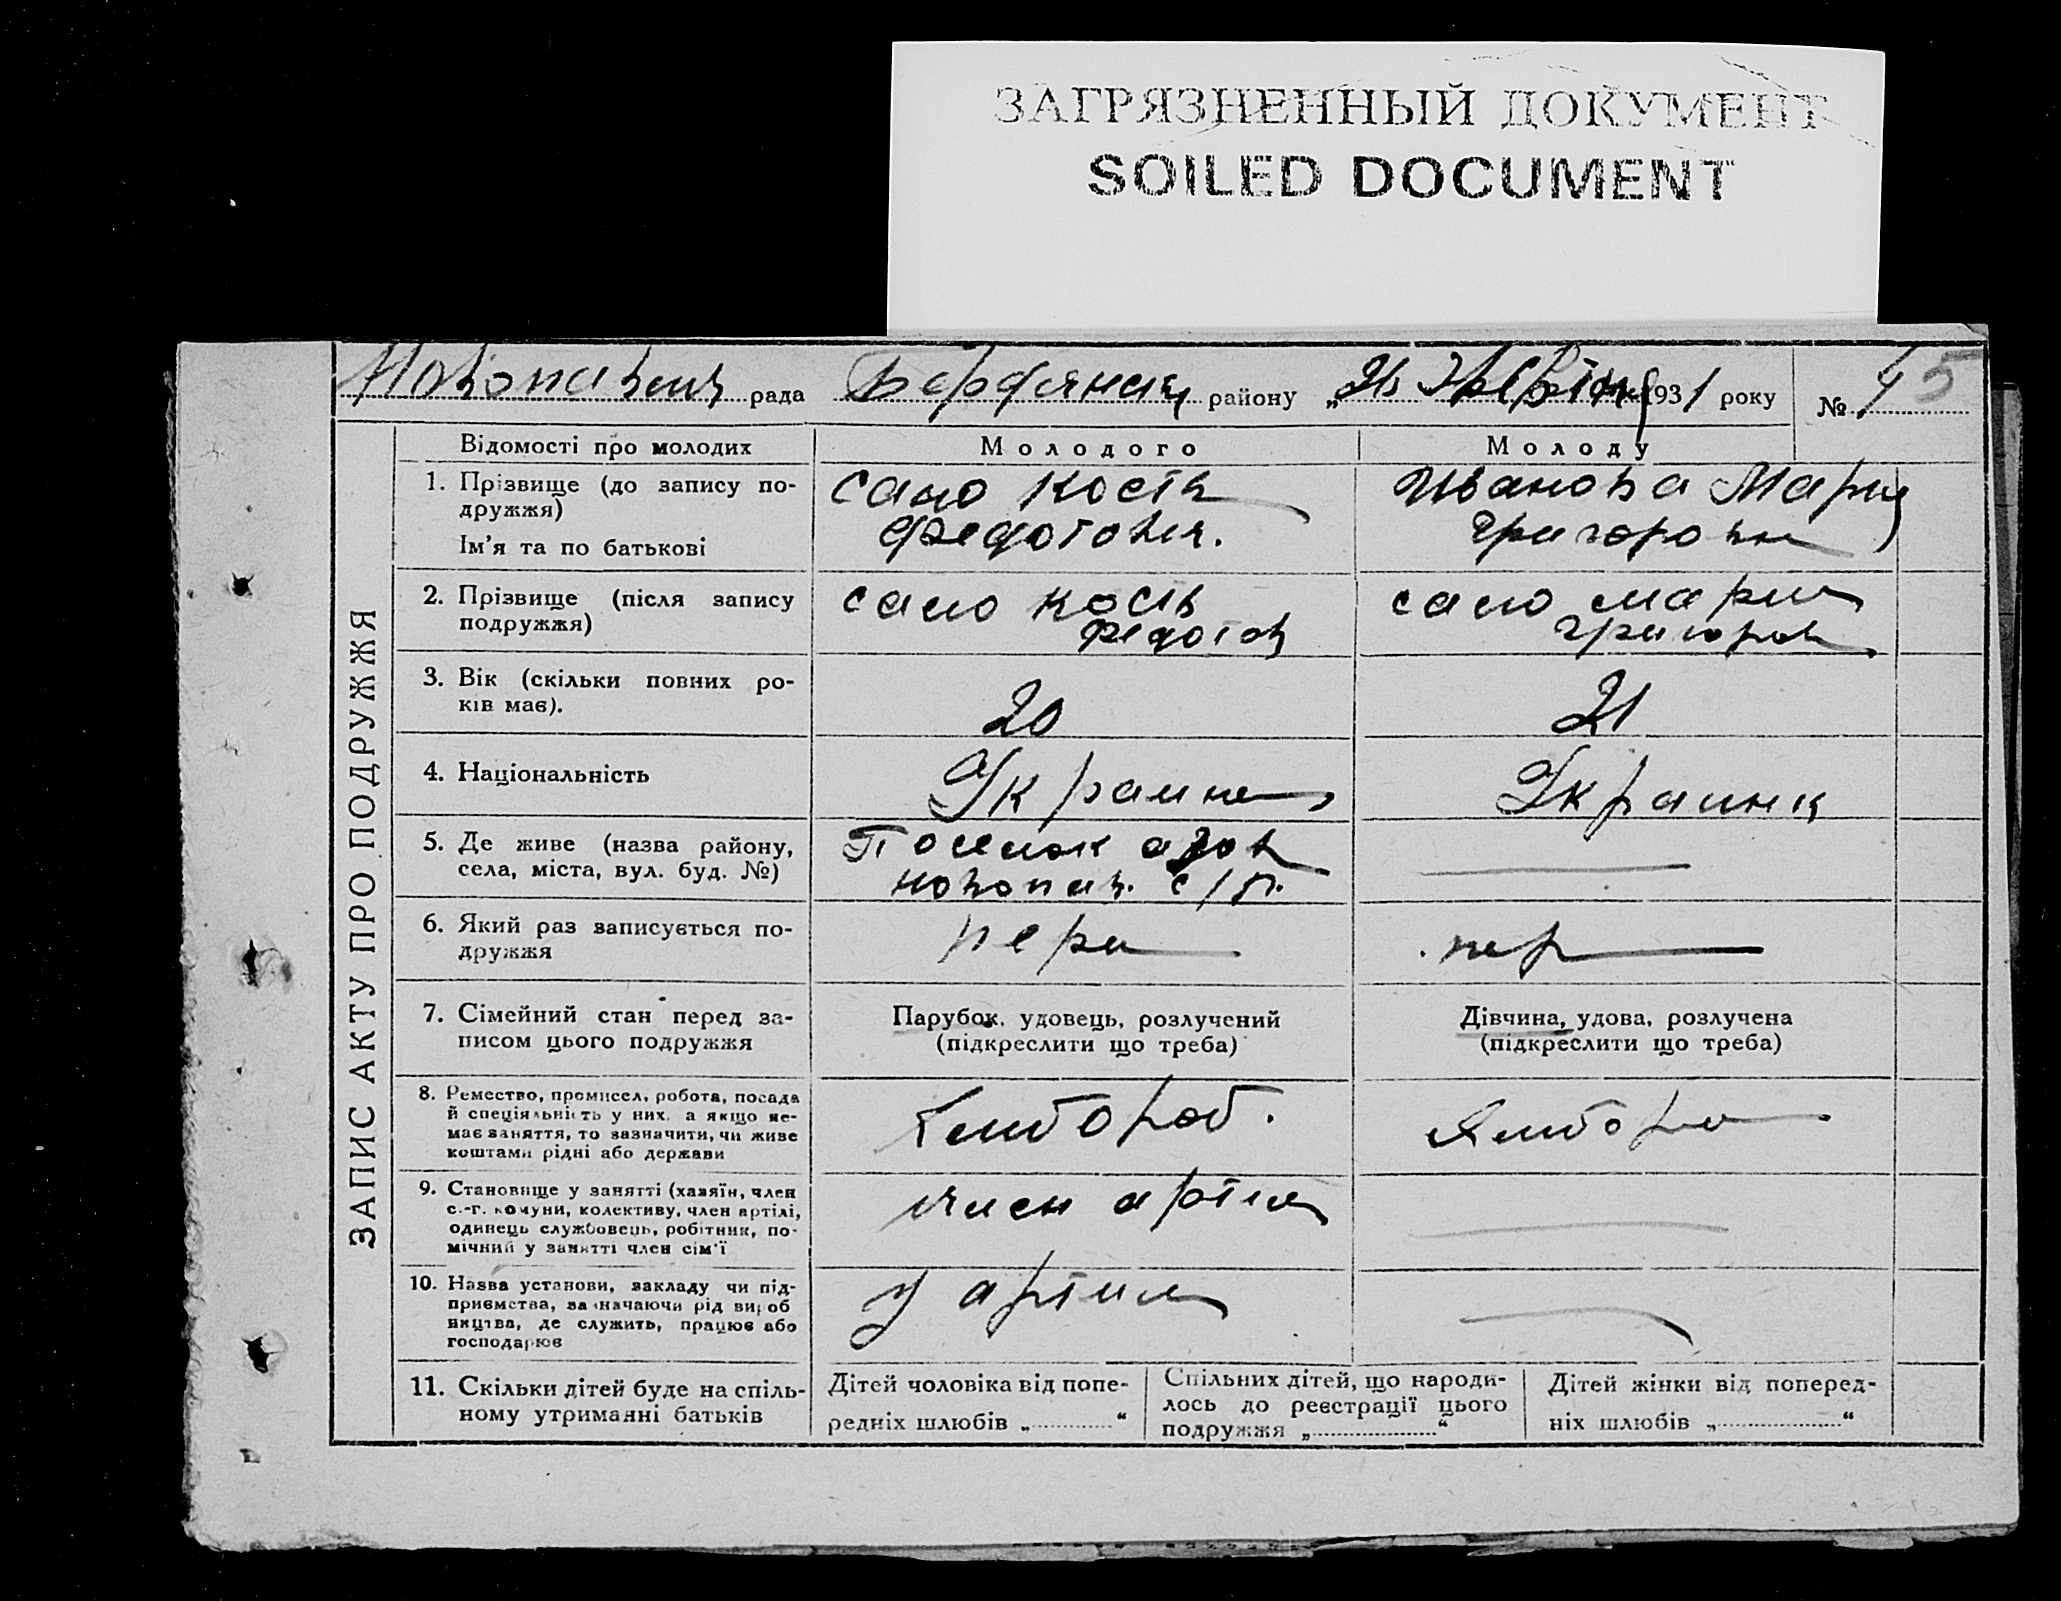 ЗАГРЯЗНЕННЫЙ ДОКУМЕНТ
SOILED DOCUMENT
рада Бердянськ району „ 1931 року № 45
ЗАПИС АКТУ ПРО ПОДРУЖЖЯ
Відомості про молодих
Молодого
Молоду
1. Прізвище (до запису по-
дружжя)
Ім'я та по батькові
Сало Кость
Федотович.
Иванова Мария
Григоровн
2. Прізвище (після запису
подружжя)
сало кость
Федотов
сало мария
григоров
3. Вік (скільки повних ро-
ків має).
20
21
4. Національність
Украинец
Украинк
5. Де живе (назва району,
села, міста, вул. буд. №)
Поселок азов
новопав. с/р.
6. Який раз записується по-
дружжя
перв
пер
7. Сімейний стан перед за-
писом цього подружжя
Парубок, удовець, розлучений
(підкреслити що треба)
Дівчина, удова, розлучена
(підкреслити що треба)
8. Ремество, промисел, робота, посада
й спеціяльність у них, а якщо не-
має заняття, то зазначити, чи живе
коштами рідні або держави
Хлібороб.
Хлібор
9. Становище у занятті (хазяїн, член
с.-г. комуни, колективу, член артілі,
одинець службовець, робітник, по-
мічний у занятті член сім'ї
член артил
10. Назва установи, закладу чи під-
приємства, зазначаючи рід вироб
ництва, де служить, працює або
господарює
у артил
11. Скільки дітей буде на спіль-
ному утриманні батьків
Дітей чоловіка від попе-
редніх шлюбів „ “
Спільних дітей, що народи-
лось до реєстрації цього
подружжя „ “
Дітей жінки від поперед-
ніх шлюбів „ “